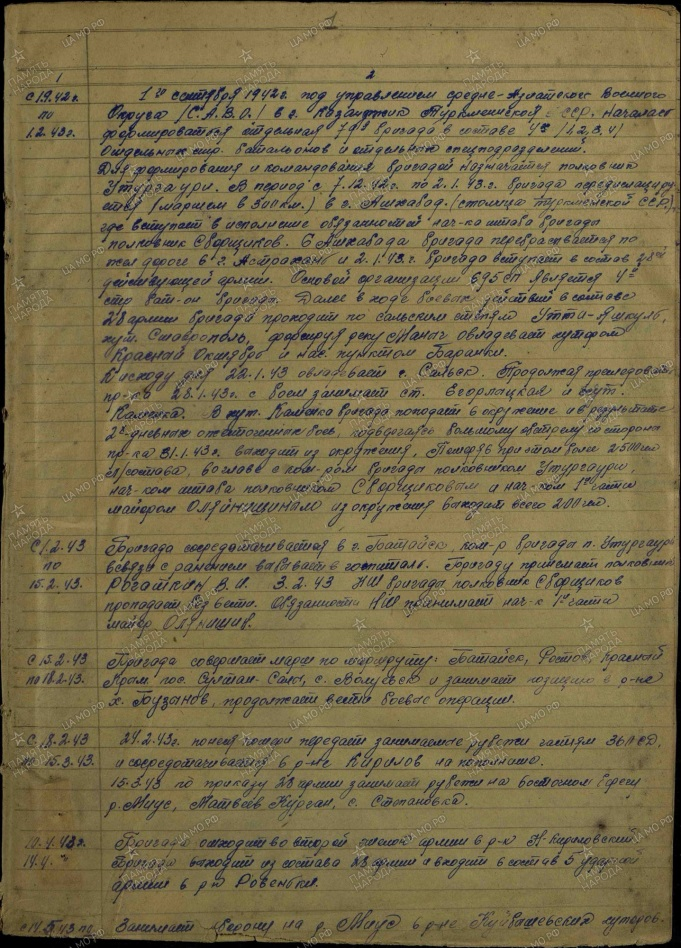 1
1
2
С 1.9.42 г.
по
1.2.43 г.
1го сентября 1942 г. под управлением средне-Азиатского Военного
Округа /С.А.В.О./ в г. Казанджик Туркменской ССР. началась
формироваться отдельная 79я бригада в составе 4х /1,2,3,4/
Отдельных стр. батальонов и отдельных спецподразделений.
Для формирования и командования бригадой назначается полковник
Утургаури. В период с 7.12.42 г. по 2.1.43 г. бригада передислациру-
ется /маршем в 300 км./ в г. Ашхабад. (столица Туркменской ССР),
где вступает в исполнение обязанностей нач-ка штаба бригады
полковник Сворщиков. С Ашхабада бригада перебрасывается по
жел. дороге в г. Астрахань и 2.1.43 г. бригада вступает в состав 28ой
действующей армии. Основой организации 695 сп является 4й
стр бат-он бригады. Далее в ходе боевых действий в составе
28 армии бригада проходит по Сальским степям Утта-Яшкуль,
хут. Ставрополь, форсируя реку Маныч овладевает хутором
Красный Октябрь и нас. пунктом Бараники.
К исходу дня 22.1.43 овладевает г. Сальск. Продолжая преследовать
пр-ка 28.1.43 г. с боем занимает ст. Егорлыцкая и хут.
Каменка. В хут. Каменка бригада попадает в окружение и в результате
2х-дневных ожесточенных боев, подвергаясь большому обстрелу со стороны
пр-ка 31.1.43 г. выходит из окружения, Потеряв при этом более 2500 чел
л/состава, во главе с ком-ром бригады полковником Утургаури,
нач-ком штаба полковником Сворщиковым и нач-ком 1й части
майором из окружения выходит всего 200 чел.
С 1.2.43
по
15.2.43.
Бригада сосредотачивается в г. Батайск ком-р бригады п. Утургаури
в связи с ранением выбывает в госпиталь. Бригаду принимает полковник
Рогаткин В. И. 3.2.43 НШ бригады полковник Сворщиков
пропадает без вести. Обязанности НШ принимает нач-к 1й части
майор
С 15.2.43
по 18.2.43.
Бригада совершает марш по маршруту: Батайск, Ростов, Красный
Крым, пос. Султан-Салы, с. и занимает позицию в р-не
х. Бузанов, продолжает вести боевые операции.
С 18.2.43
по 15.3.43.
24.2.43 г. понеся потери передает занимаемые рубежи частям СД,
и сосредотачивается в р-не Кирилов на пополнение.
15.3.43 по приказу 28 армии занимает рубежи на Восточном берегу
р. Миус, Матвеев Курган, с. Степановка.
10.4.43 г.
14.4. "
Бригада отходит во второй эшелон армии в р-н Н-Кириловский
Бригада выходит из состава 28 армии и входит в состав 5 ударной
армии в р-н Ровеньки.
Занимает оборону на р. Миус в р-не Куйбышевских хуторов.